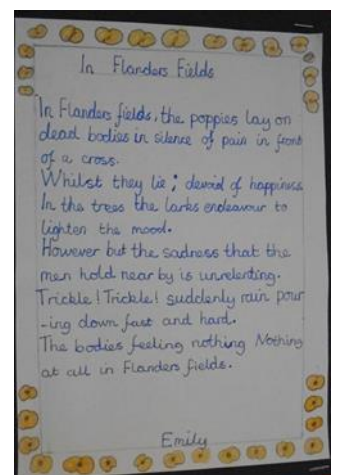 In Flanders Fields
In Flanders fields, the poppies lay on
dead bodies in silence of pain in front
of a cross.
Whilst they lie; devoid of happiness
In the trees the larks endeavour to
lighten the mood.
However but the sadness that the
men hold near by is unrelenting.
Trickle! Trickle! suddenly rain pour
-ing down fast and hard.
The bodies feeling nothing Nothing
at all in Flanders fields.
Emily